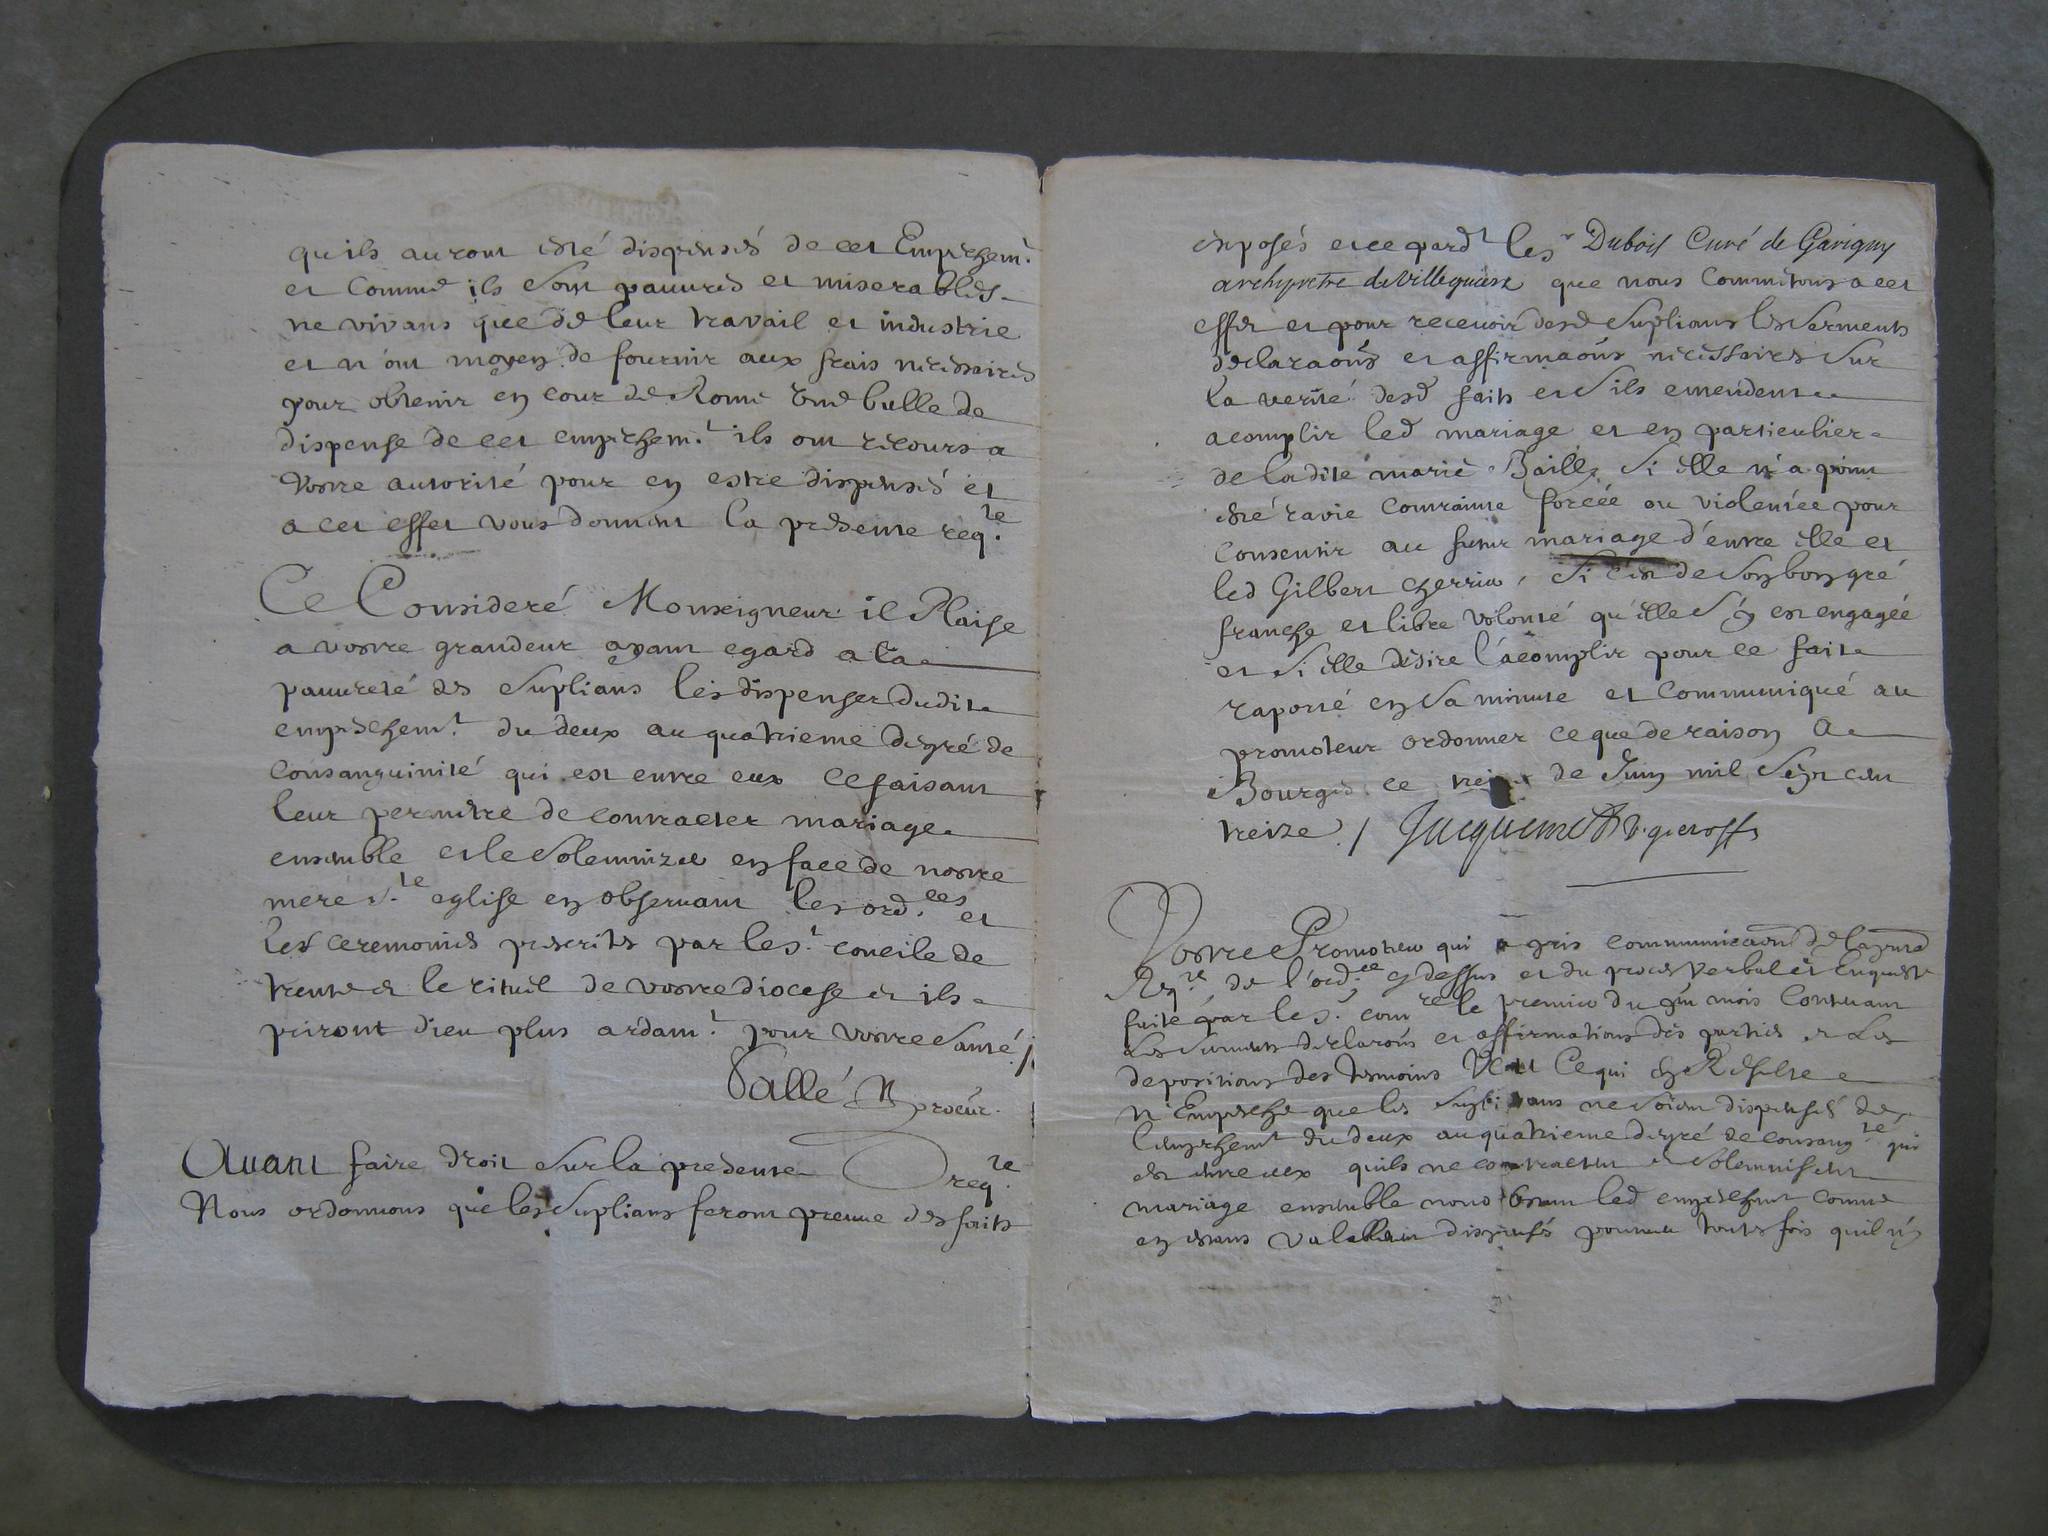 quils auront esté dispensés de cet Empeschem.t
et comme ils sont pauures et miserables
ne vivans que de leur travail et industrie
et n'ont moyen de fournir aux frais necessaires
pour obtenir en cour de Rome une bulle de
dispense de cet empeschem.t ils ont recours a
vostre autorité pour en estre dispensés et
a cet effet vous donnent la presente req.te
Ce Consideré Monseigneur il Plaise
a vostre grandeur ayant egard a la
pauureté des suplians les dispenser dudit
empeschem.t du deux au quatrieme degré de
consanguinité qui est entre eux ce faisant
leur permetre de contracter mariage
ensemble et le solemnizer en face de nostre
mere s.te eglise en obseruant les ord.ces et
les ceremonies prescrites par le s.t concile de
trente et le rituel de vostre diocese et ils
priront dieu plus ardam.t pour vostre santé /.
Vallé procur.
Auant faire droit sur la presente req.te
Nous ordonnons que les suplians feront preuue des faits
exposés et ce pard.t le s.r Dubois Curé de Garigny
archyprtre de villequiers que nous commetons a cet
effet et pour recevoir desd suplians les serments
declaraons et affirmaons necessaires sur
la verité desd faits et s'ils entendent
acomplir led mariage et en particulier
de ladite marie Bailly si elle n'a point
esté ravie contrainte forcée ou violentée pour
consentir au futur mariage d'entre elle et
led Gilbert cherrier, si c'est de son bon gré
franche et libre volonté qu'elle s'y est engagée
et si elle desire l'acomplir pour ce fait
raporté en sa minute et communiqué au
promoteur ordonner ce que de raison a
Bourges ce de Juin mil sept cent
treize / Jacquemet
Vostre Promoteur qui a pris communicaon de la pnte
Req.te de l'ord.ce cy dessus et du proces verbal et Enqueste
faite par le s.r com.re le premier du pnt mois Contenant
Les serments declaraons et affirmations des parties et Les
depositions des tesmoins Veu Ce qui en Resulte
n'Empesche que les supli ans ne soient dispensés de
l'empeschemt du deux au quatrieme degré de consang.té qui
est entre eux quils ne contractent et solemnisent
mariage ensemble nonobstant led empeschmt comme
en estans valablemt dispensés pourueu toutesfois quil n'y